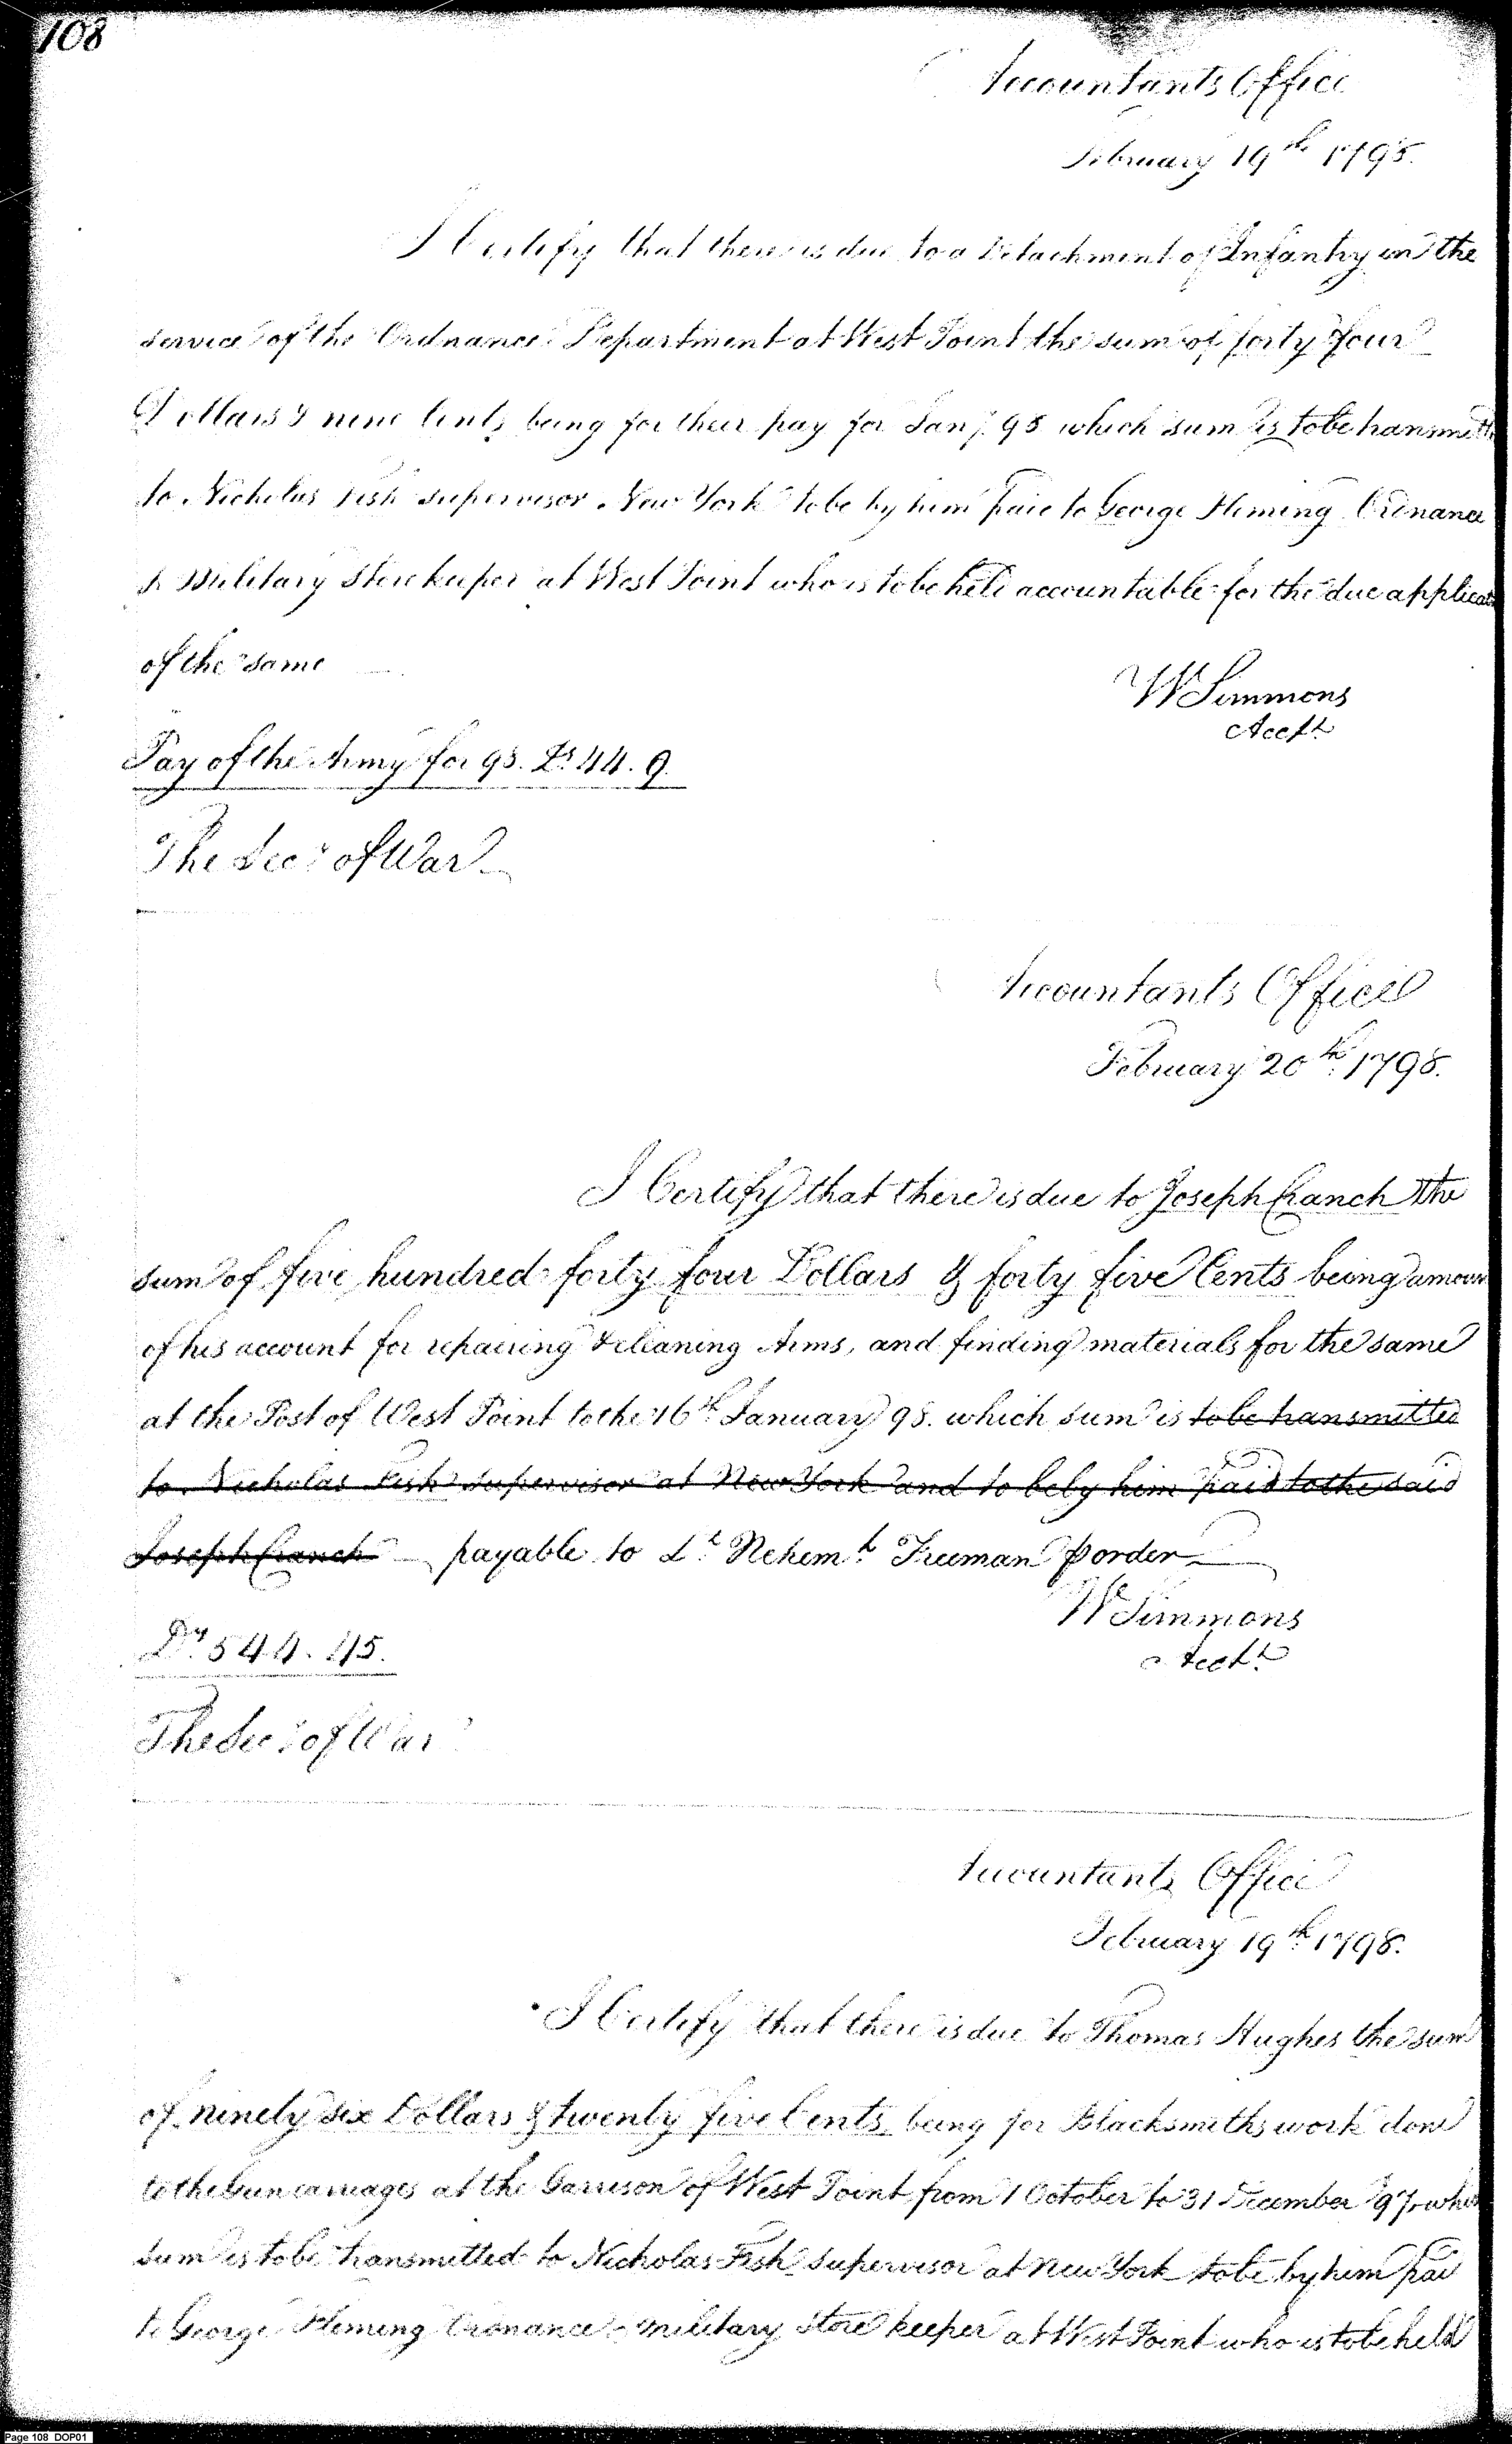 108
Accountants Office
February 19th 1798.
I Certify that there is due to a Detachment of Infantry in the
service of the Ordnance Department at West Point the sum of forty four
Dollars & nine Cents being for their pay for Jany. 98 which sum is to be transmitt
to Nicholas Fish supervisor New York to be by him paid to George Fleming Ordnance
& Military Storekeeper at West Point who is to be held accountable for the due applicat
of the same
W Simmons
Acctt
Pay of the Army for 98. Ds 44. 9.
The Secy of War
Accountants Office
February 20th 1798.
I Certify that there is due to Joseph Cranch the
sum of five hundred forty four Dollars & forty five Cents being amoun
of his account for repairing & cleaning Arms, and finding materials for the same
at the Post of West Point to the 16th January 98. which sum is to be transmitted
to Nicholas Fish supervisor at New York and to be by him paid to the said
Joseph Cranch payable to Lt. Nehemh. Freeman p order
W Simmons
Acctt
Drs 544. 45.
The Secy of War
Accountants Office
February 19th 1798.
I Certify that there is due to Thomas Hughes the sum
of ninety six Dollars & twenty five Cents, being for Blacksmiths work done
to the Gun carriages at the Garrison of West Point from 1 October to 31 December 97. which
sum is to be transmitted to Nicholas Fish supervisor at New York to be by him pai
to George Fleming Ordnance & military Store keeper at West Point who is to be held
Page 108 DOP01